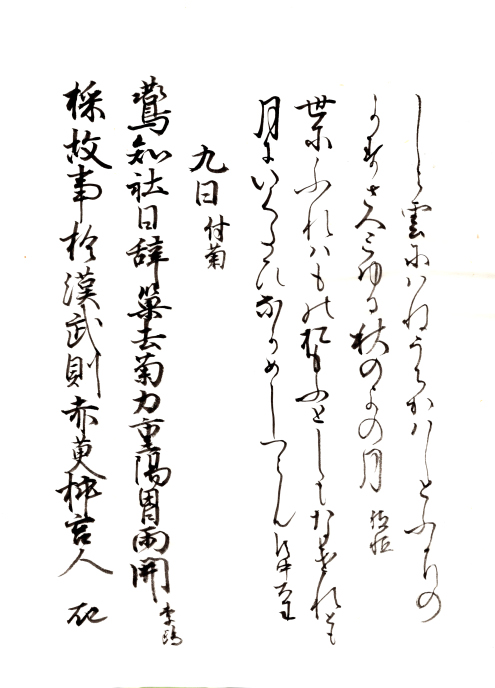 しら雲にはねうちかはしとふかりの
かすさへみゆる秋のよの月
世にふれはもの思ふとしもなけれとも
月にいくたひなかめしつらん
九日 付菊
鷰知社日辞巣去菊為重陽冒雨開
採故事於漢武則赤萸插宮人